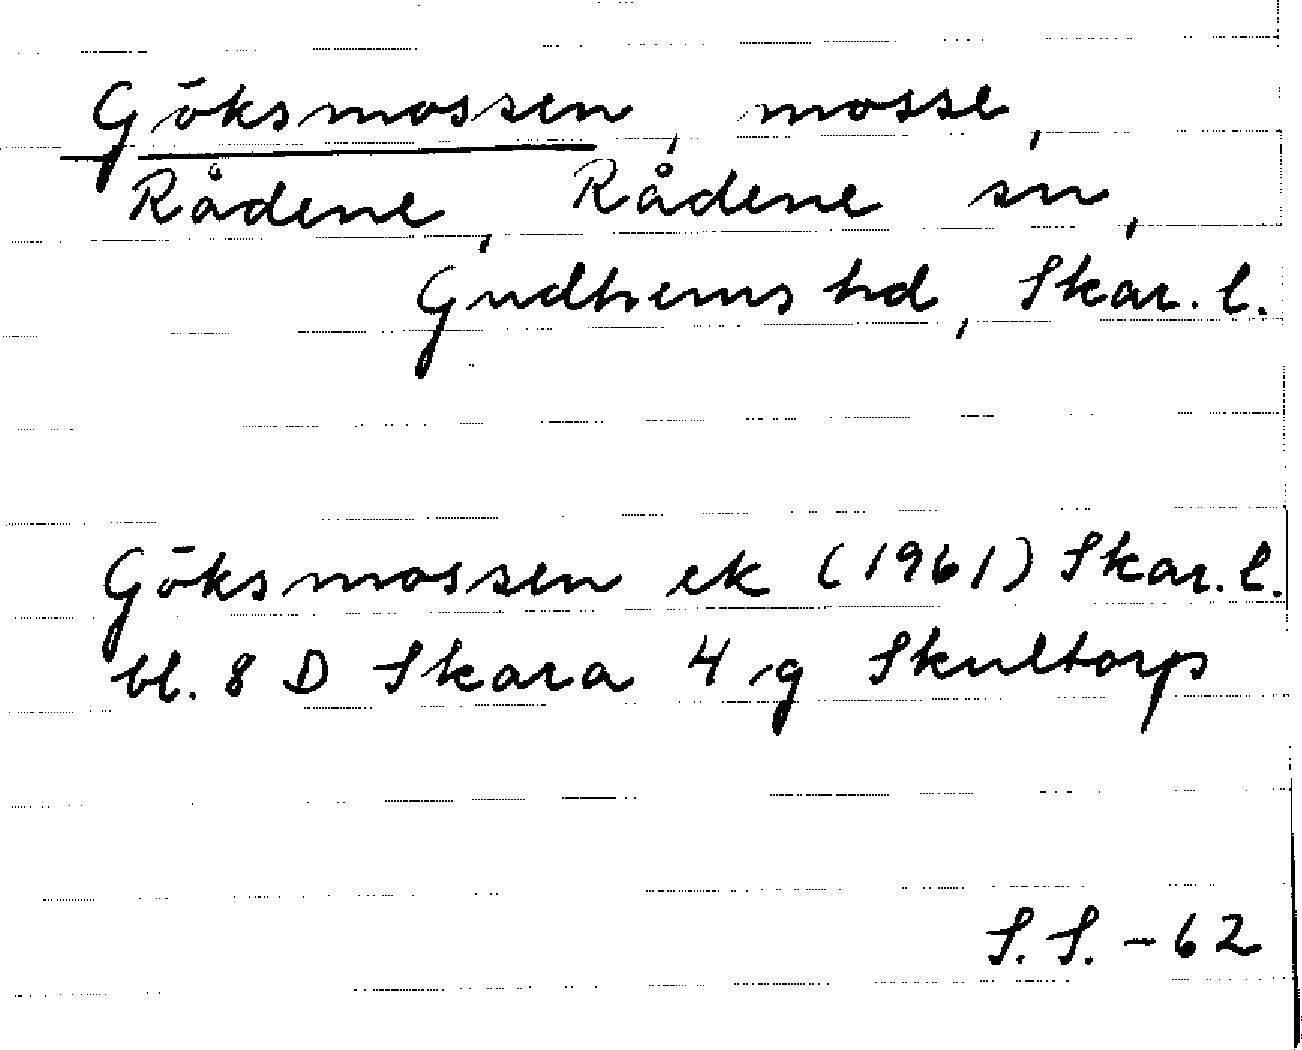 Göksmossen, mosse,
Rådene, Rådene sn,
Gudhems hd, Skar. l.
Göksmossen ek (1961) Skar. l.
bl. 8 D Skara 4 g Skultorp
S.S. - 62